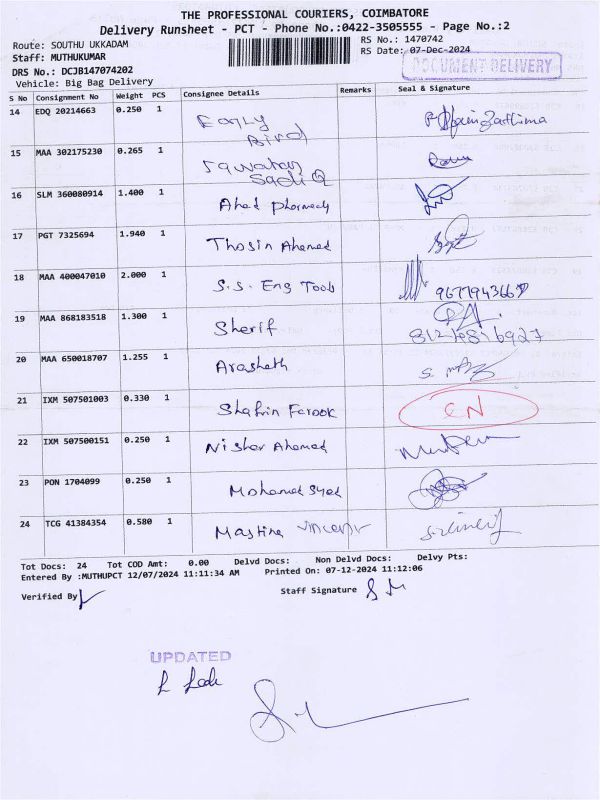 THE PROFESSIONAL COURIERS, COIMBATORE
Delivery Runsheet - PCT - Phone No.:0422-3505555 - Page No.:2
Route: SOUTHU UKKADAM RS No.: 1470742
Staff: MUTHUKUMAR RS Date: 07-Dec-2024
DRS No.: DCJB147074202
DOCUMENT DELIVERY
Vehicle: Big Bag Delivery
S No Consignment No Weight PCS Consignee Details Remarks Seal & Signature
14 EDQ 20214663 0.250 1 Early Bird
15 MAA 302175230 0.265 1
16 SLM 360080914 1.400 1 Ahad pharmacy
17 PGT 7325694 1.940 1 Thosin Ahamed
18 MAA 400047010 2.000 1 S.S. Eng Tools
19 MAA 868183518 1.300 1 Sherif
20 MAA 650018707 1.255 1 Arashath
21 IXM 507501003 0.330 1 Shafrin Farook CN
22 IXM 507500151 0.250 1 Nishar Ahamed
23 PON 1704099 0.250 1 Mohamed Syed
24 TCG 41384354 0.580 1
Tot Docs: 24 Tot COD Amt: 0.00 Delvd Docs: Non Delvd Docs: Delvy Pts:
Entered By :MUTHUPCT 12/07/2024 11:11:34 AM Printed On: 07-12-2024 11:12:06
Verified By Staff Signature
UPDATED